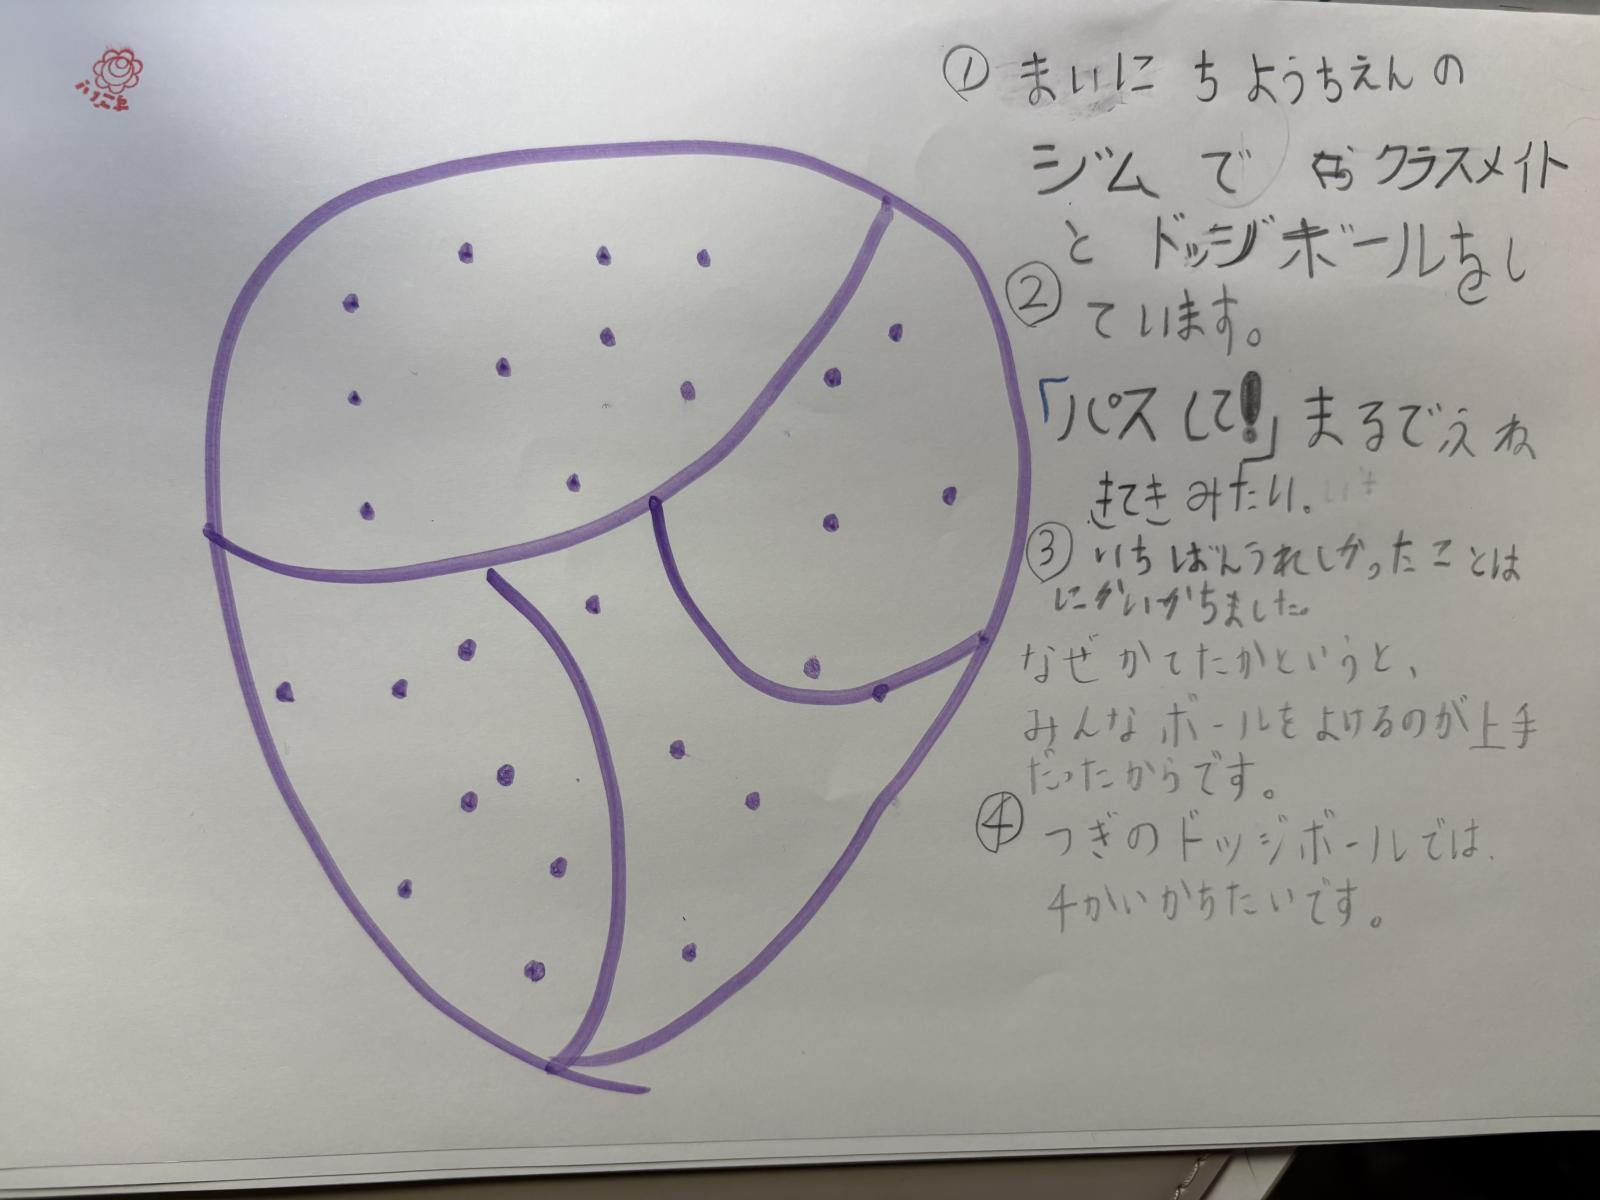 ① まいにちようちえんの
ジムで クラスメイト
とドッジボールをし
② ています。
「パスして!」まるでえね
きてきみたい.
③ いちばんうれしかったことは
にかいかちました。
なぜかてたかというと、
みんなボールをよけるのが上手
だったからです。
④ つぎのドッジボールでは、
4かいかちたいです。